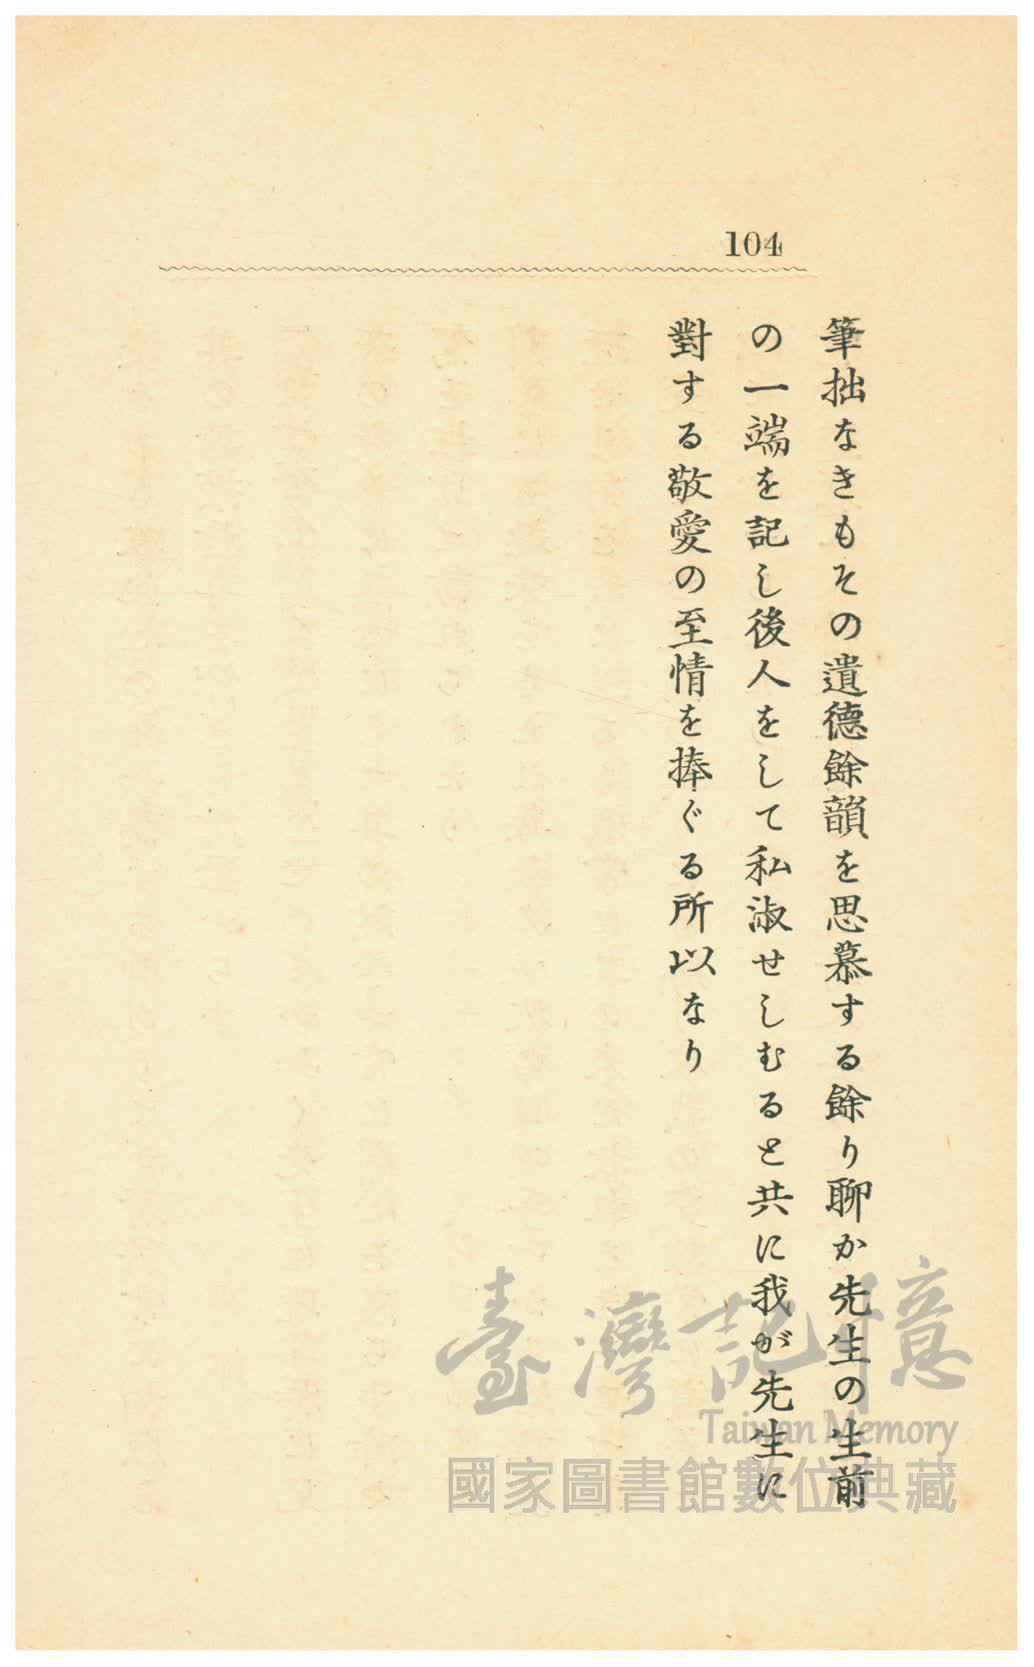 104
筆拙なきもその遺德餘韻を思慕する餘り聊か先生の生前
の一端を記し後人をして私淑せしむると共に我が先生に
對する敬愛の至情を捧ぐる所以なり
臺灣記憶
Taiwan Memory
國家圖書館數位典藏